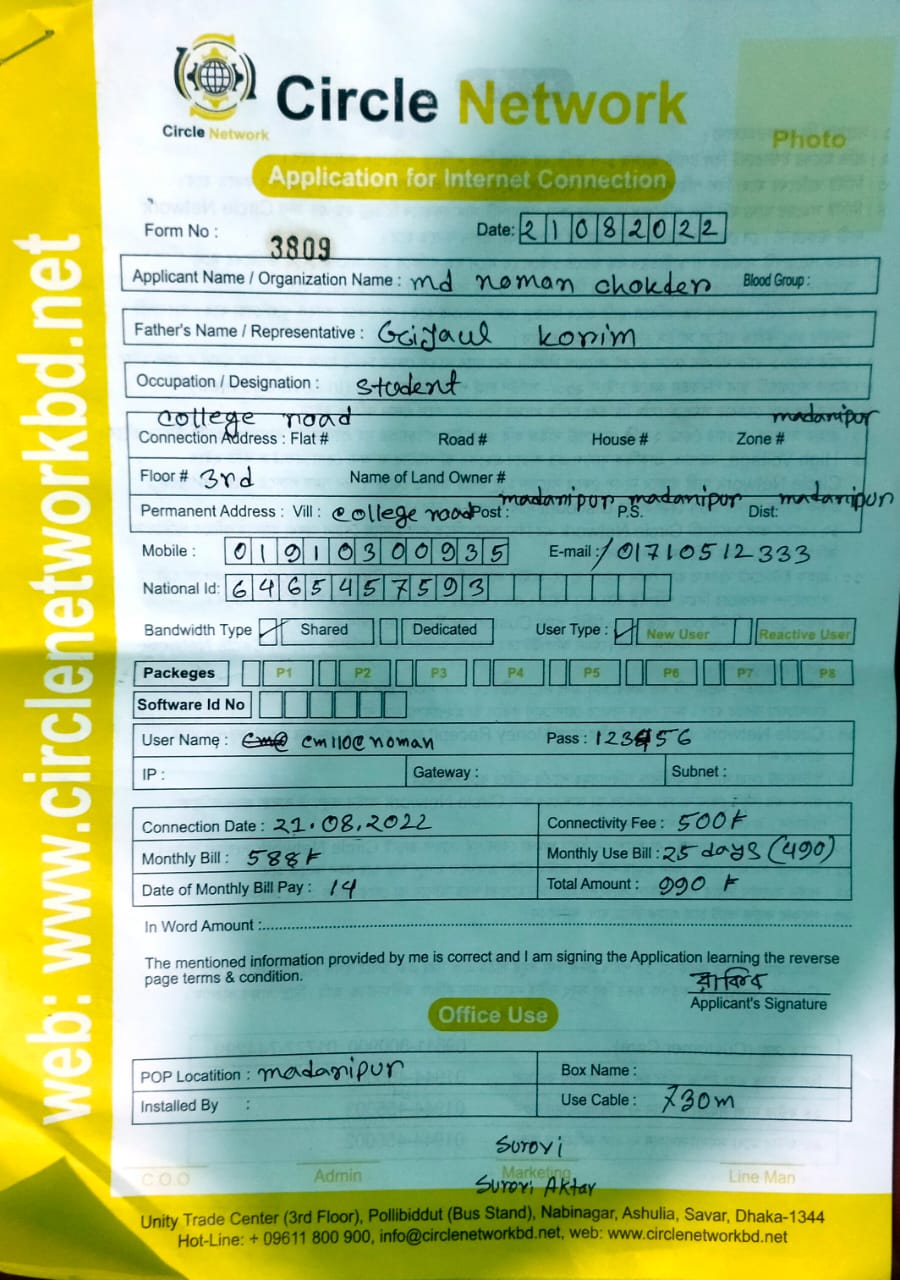 Circle Network
Circle Network
Photo
Application for Internet Connection
Form No : 3809 Date: 21082022
Applicant Name / Organization Name : md noman chokder Blood Group :
Father's Name / Representative : korim
Occupation / Designation : student
college road madaripur
Connection Address : Flat # Road # House # Zone #
Floor # 3rd Name of Land Owner #
Permanent Address : Vill : college road Post : madaripur P.S. madaripur Dist: madaripur
Mobile : 01910300935 E-mail : / 01710512333
National Id: 6465457593
Bandwidth Type Shared Dedicated User Type : New User Reactive User
Packeges P1 P2 P3 P4 P5 P6 P7 P8
Software Id No
User Name : cm110@noman Pass : 123456
IP : Gateway : Subnet :
Connection Date : 21.08.2022 Connectivity Fee : 500 F
Monthly Bill : 588 F Monthly Use Bill : 25 days (490)
Date of Monthly Bill Pay : 14 Total Amount : 990 F
In Word Amount :
The mentioned information provided by me is correct and I am signing the Application learning the reverse
page terms & condition.
রাকিব
Applicant's Signature
Office Use
POP Locatition : madaripur Box Name :
Installed By : Use Cable : 730m
Surovi
C.O.O Admin Marketing Line Man
Surovi Aktar
Unity Trade Center (3rd Floor), Pollibiddut (Bus Stand), Nabinagar, Ashulia, Savar, Dhaka-1344
Hot-Line: + 09611 800 900, info@circlenetworkbd.net, web: www.circlenetworkbd.net
web: www.circlenetworkbd.net